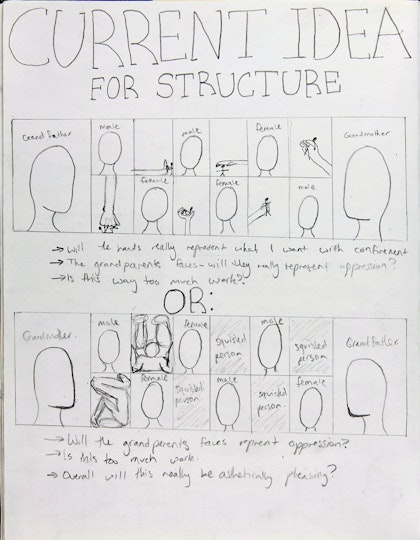 CURRENT IDEA
FOR STRUCTURE
Grandfather male male female Grandmother
female female male
→ Will the hands really represent what I want with confinement
→ The grandparents faces - will they really represent oppression?
→ Is this way too much work?
OR:
Grandmother male female squished person male squished person Grandfather
female squished person male squished person female
→ Will the grandparents faces reprent oppression?
→ Is this too much work.
→ Overall will this really be asthetically pleasing?